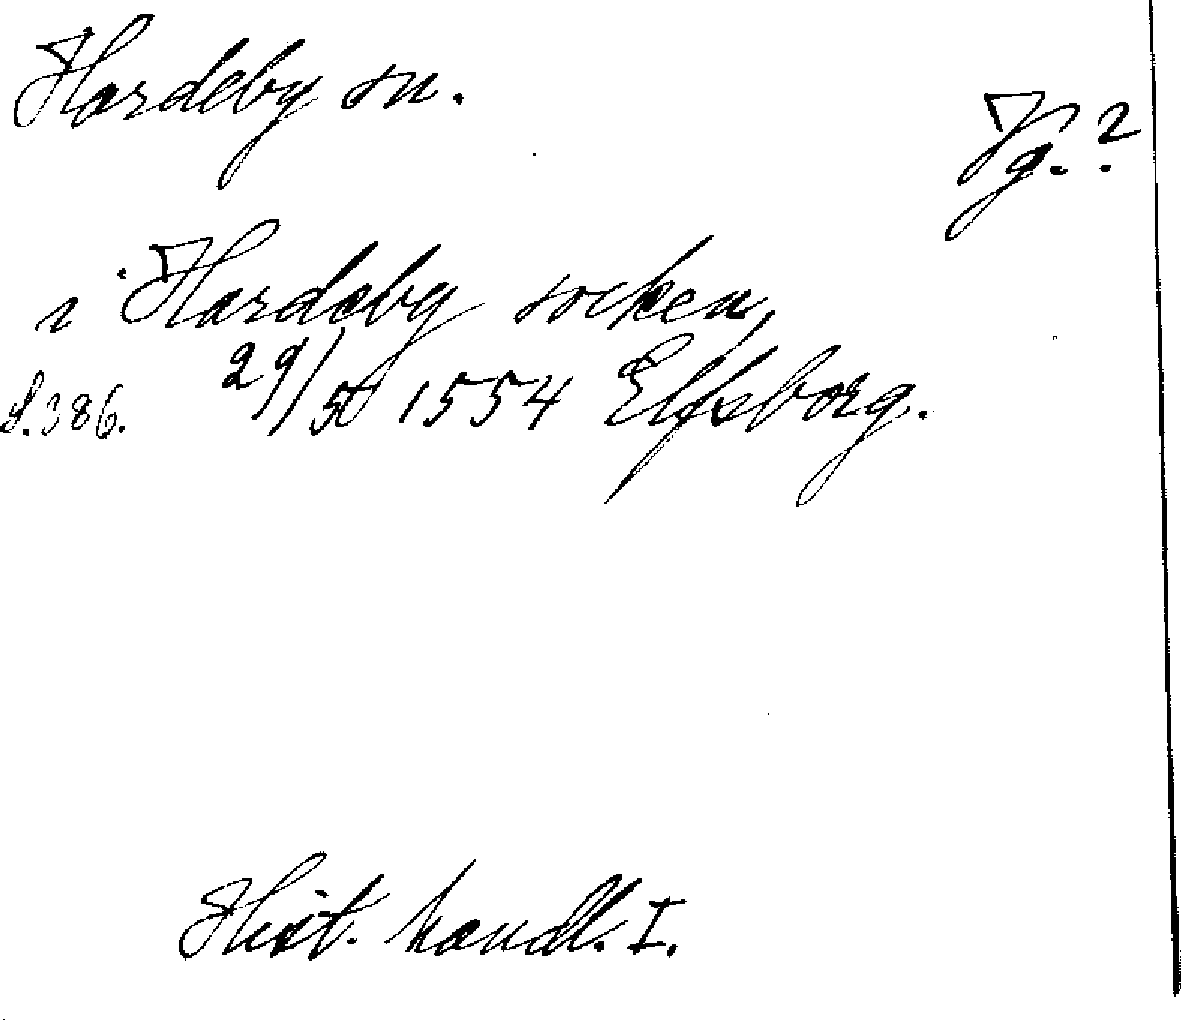 Hardeby sn.
Vg.?
i Hardeby socken,
S.386. 29/50 1554 Elfsborg.
Hist. handl. I.